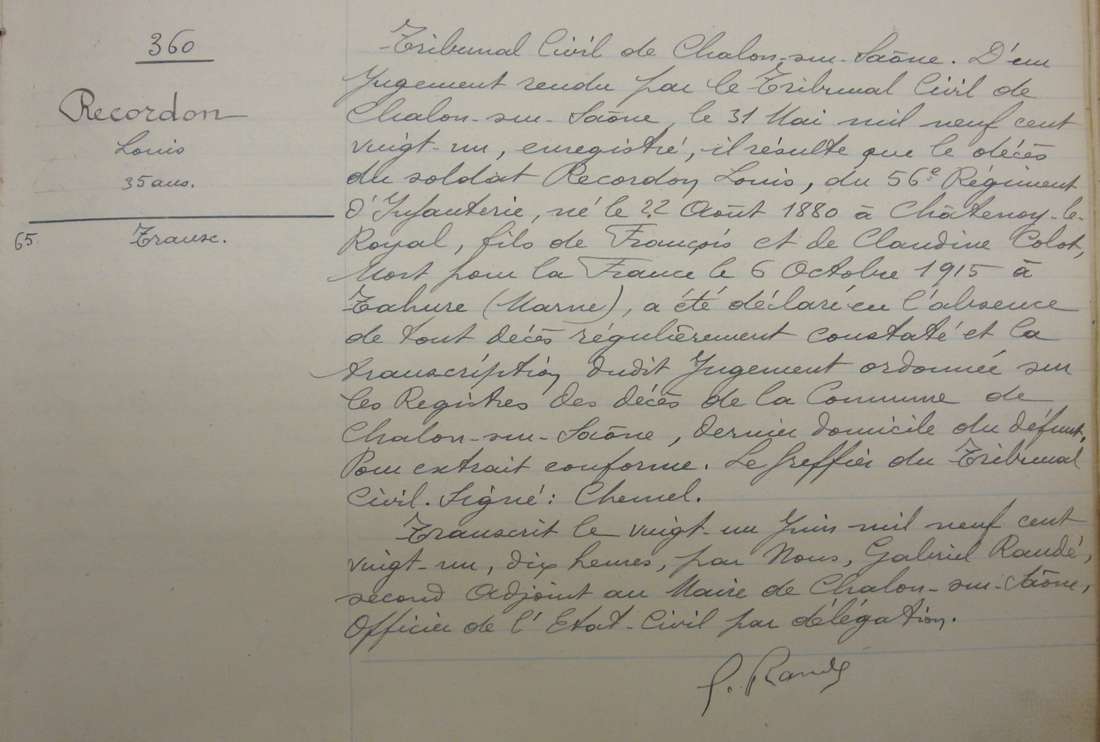 360
Recordon
Louis
35 ans.
65. Transc.
Tribunal Civil de Chalon-sur-Saône. D'un
Jugement rendu par le Tribunal Civil de
Chalon-sur-Saône, le 31 Mai mil neuf cent
vingt-un, enregistré, il résulte que le décès
du soldat Recordon Louis, du 56e Régiment
d'Infanterie, né le 22 Août 1880 à Châtenoy-le-
Royal, fils de François et de Claudine Colot,
Mort pour la France le 6 Octobre 1915 à
Tahure (Marne), a été déclaré en l'absence
de tout décès régulièrement constaté et la
transcription dudit Jugement ordonnée sur
les Registres des décès de la Commune de
Chalon-sur-Saône, dernier domicile du défunt.
Pour extrait conforme. Le Greffier du Tribunal
Civil. Signé : Chemel.
Transcrit le vingt-un Juin mil neuf cent
vingt-un, dix heures, par Nous, Gabriel Randé,
second Adjoint au Maire de Chalon-sur-Saône,
Officier de l'Etat-Civil par délégation.
G. Randé